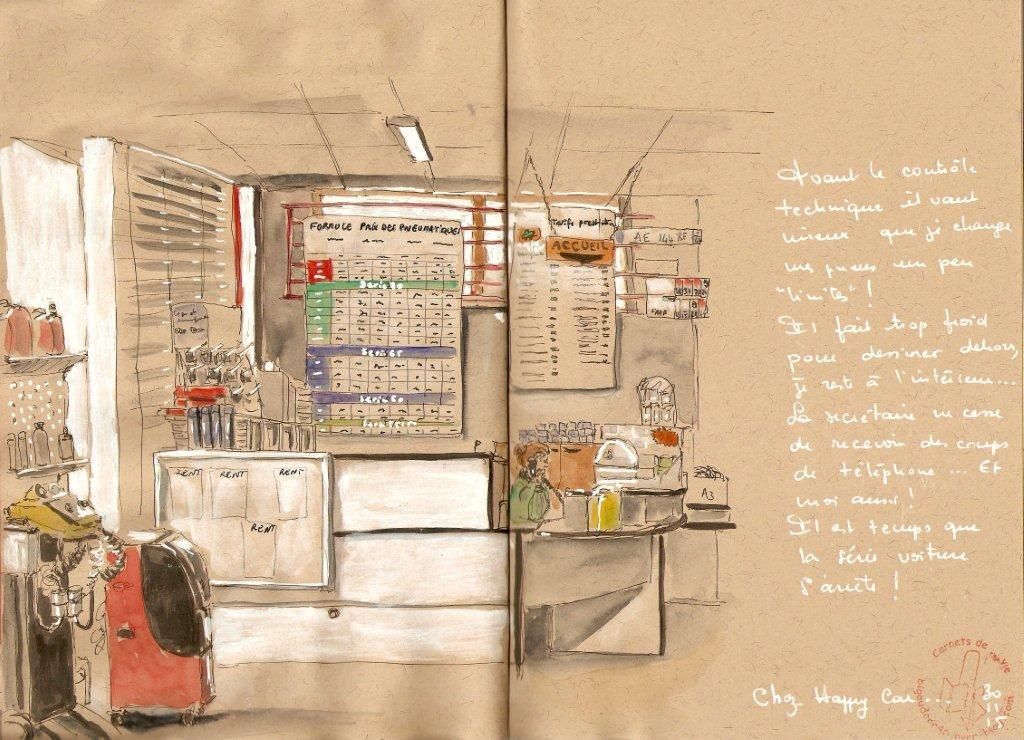 FORMULE PRIX DES PNEUMATIQUES
ACCUEIL
AE 144 RF
RENT RENT RENT
RENT
P
A3
Avant le contrôle
technique il vaut
mieux que je change
mes pneus un peu
"limites" !
Il fait trop froid
pour dessiner dehors,
je reste à l'intérieur...
La secrétaire ne cesse
de recevoir des coups
de téléphone... Et
moi aussi !
Il est temps que
la série voiture
s'arrête !
Chez Happy Car...
30
11
15
Carnets de